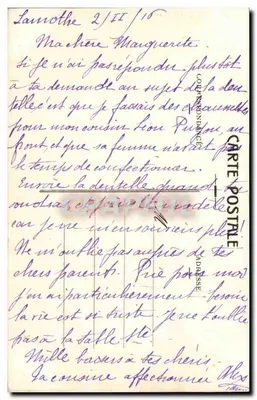 Lamothe 2/II/16
Ma chère Marguerite.
Si je n'ai pas repondu plus tôt
à ta demande au sujet de la den
telle c'est que je faisais des chaussettes
pour mon cousin Léon au
front et que sa femme n'avait pas
le temps de confectionner.
Envoie la dentelle quand tu
voudras le modèle
car je ne m'en souviens plus!
Ne m'oublie pas auprès de tes
chers parents. Prie pour moi
j'en ai particulièrement besoin
la vie est si triste. Je ne t'oublie
pas à la table Ste
Mille baisers à tes chéris.
Ta cousine affectionnée
CARTE POSTALE
CORRESPONDANCE
ADRESSE